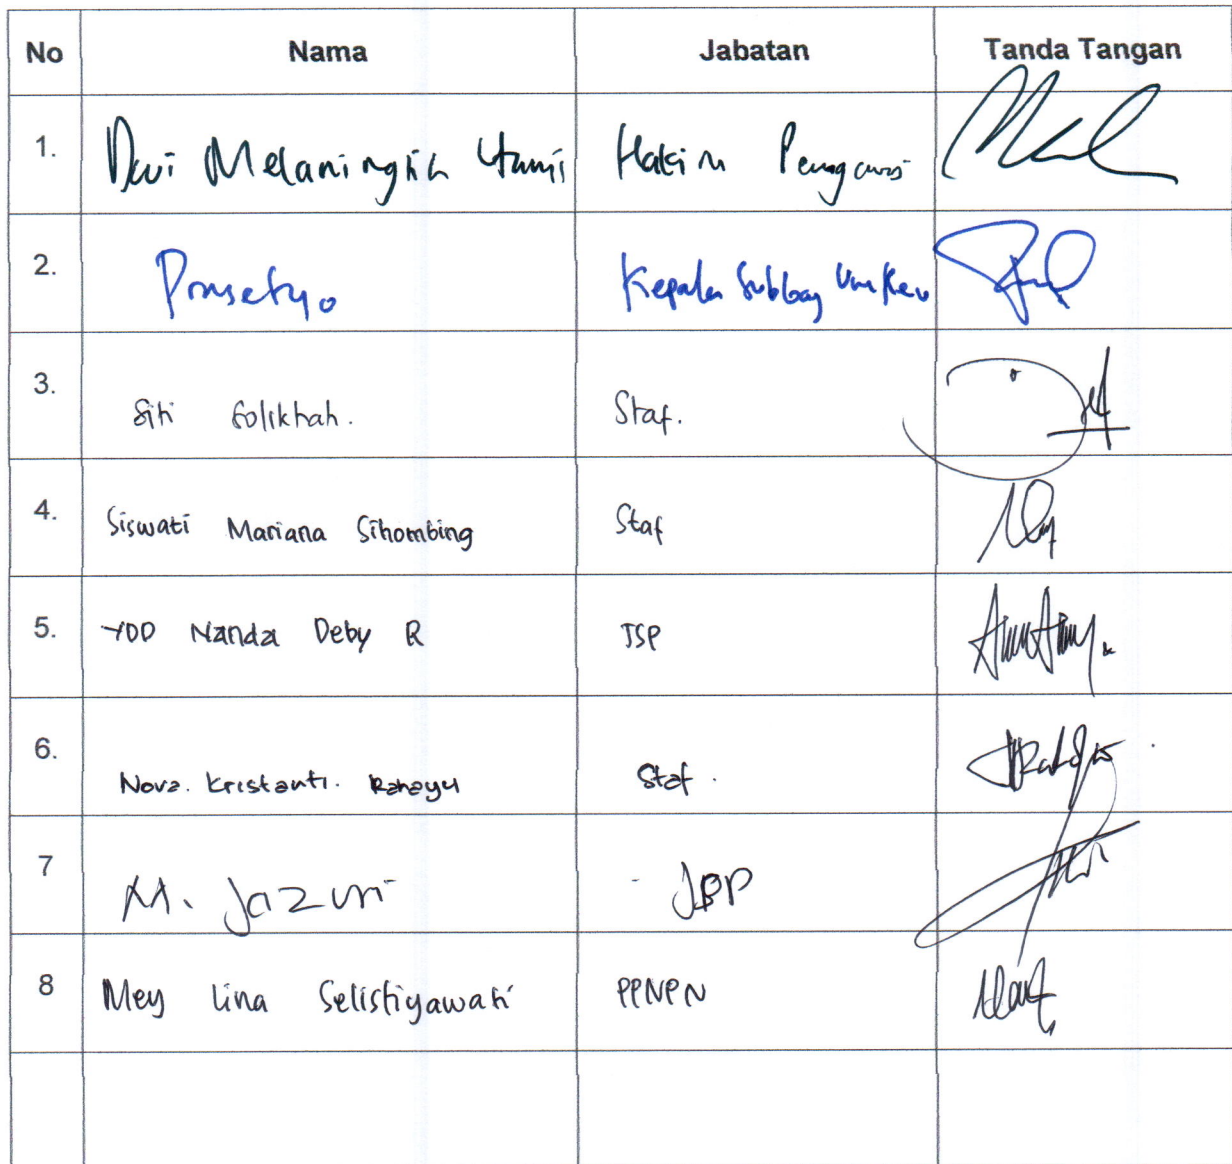 No Nama Jabatan Tanda Tangan
1. Dewi Melaningsih Utami Hakim Pengawas
2. Prasetyo Kepala Subbag Umkeu
3. Siti Solikhah. Staf.
4. Siswati Mariana Sihombing Staf
5. YDD Nanda Deby R JSP
6. Nova. Kristanti. Rahayu Staf.
7 M. Jazuri JBP
8 Mey Lina Selistiyawati PPNPN